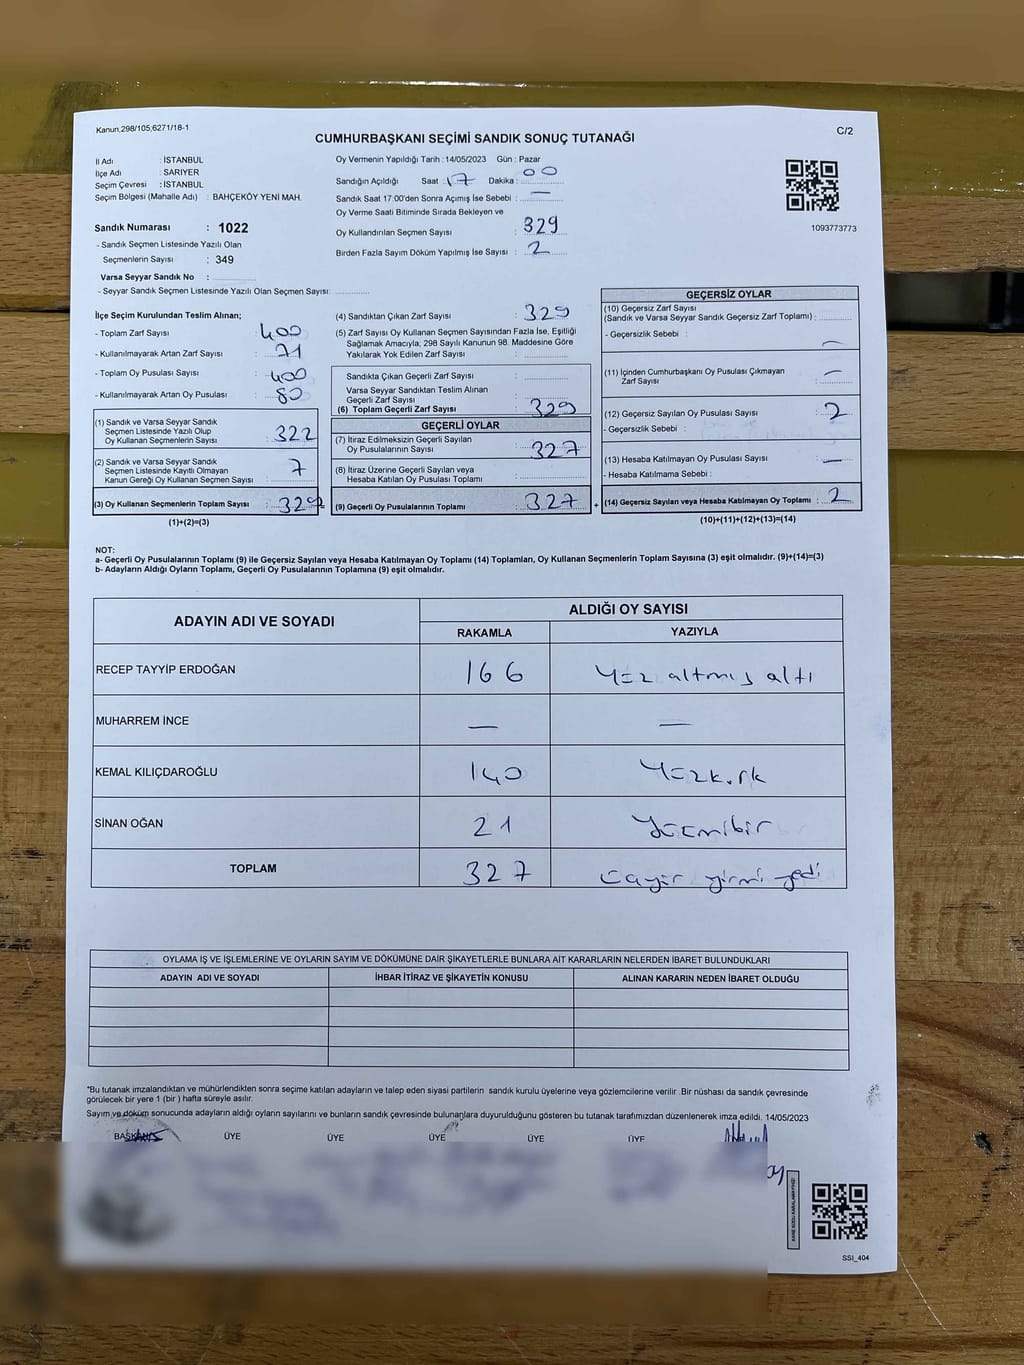 Kanun,298/105,6271/18-1
C/2
CUMHURBAŞKANI SEÇİMİ SANDIK SONUÇ TUTANAĞI
İl Adı : İSTANBUL
İlçe Adı : SARIYER
Seçim Çevresi : İSTANBUL
Seçim Bölgesi (Mahalle Adı) : BAHÇEKÖY YENİ MAH.
Sandık Numarası : 1022
- Sandık Seçmen Listesinde Yazılı Olan
Seçmenlerin Sayısı : 349
Varsa Seyyar Sandık No :
- Seyyar Sandık Seçmen Listesinde Yazılı Olan Seçmen Sayısı:
Oy Vermenin Yapıldığı Tarih : 14/05/2023 Gün : Pazar
Sandığın Açıldığı Saat : 17 Dakika : 00
Sandık Saat 17:00'den Sonra Açımış İse Sebebi : —
Oy Verme Saati Bitiminde Sırada Bekleyen ve
Oy Kullandırılan Seçmen Sayısı : 329
Birden Fazla Sayım Döküm Yapılmış İse Sayısı : 2
1093773773
İlçe Seçim Kurulundan Teslim Alınan;
- Toplam Zarf Sayısı : 400
- Kullanılmayarak Artan Zarf Sayısı : 71
- Toplam Oy Pusulası Sayısı : 400
- Kullanılmayarak Artan Oy Pusulası : 80
(1) Sandık ve Varsa Seyyar Sandık
Seçmen Listesinde Yazılı Olup
Oy Kullanan Seçmenlerin Sayısı : 322
(2) Sandık ve Varsa Seyyar Sandık
Seçmen Listesinde Kayıtlı Olmayan
Kanun Gereği Oy Kullanan Seçmen Sayısı : 7
(3) Oy Kullanan Seçmenlerin Toplam Sayısı : 329
(1)+(2)=(3)
(4) Sandıktan Çıkan Zarf Sayısı : 329
(5) Zarf Sayısı Oy Kullanan Seçmen Sayısından Fazla İse, Eşitliği
Sağlamak Amacıyla, 298 Sayılı Kanunun 98. Maddesine Göre
Yakılarak Yok Edilen Zarf Sayısı :
Sandıkta Çıkan Geçerli Zarf Sayısı :
Varsa Seyyar Sandıktan Teslim Alınan
Geçerli Zarf Sayısı :
(6) Toplam Geçerli Zarf Sayısı : 329
GEÇERLİ OYLAR
(7) İtiraz Edilmeksizin Geçerli Sayılan
Oy Pusulasının Sayısı : 327
(8) İtiraz Üzerine Geçerli Sayılan veya
Hesaba Katılan Oy Pusulası Toplamı :
(9) Geçerli Oy Pusulalarının Toplamı : 327
=
+
GEÇERSİZ OYLAR
(10) Geçersiz Zarf Sayısı
(Sandık ve Varsa Seyyar Sandık Geçersiz Zarf Toplamı) :
- Geçersizlik Sebebi : —
(11) İçinden Cumhurbaşkanı Oy Pusulası Çıkmayan
Zarf Sayısı : —
(12) Geçersiz Sayılan Oy Pusulası Sayısı : 2
- Geçersizlik Sebebi :
(13) Hesaba Katılmayan Oy Pusulası Sayısı : —
- Hesaba Katılmama Sebebi :
(14) Geçersiz Sayılan veya Hesaba Katılmayan Oy Toplamı : 2
(10)+(11)+(12)+(13)=(14)
NOT:
a- Geçerli Oy Pusulalarının Toplamı (9) ile Geçersiz Sayılan veya Hesaba Katılmayan Oy Toplamı (14) Toplamları, Oy Kullanan Seçmenlerin Toplam Sayısına (3) eşit olmalıdır. (9)+(14)=(3)
b- Adayların Aldığı Oyların Toplamı, Geçerli Oy Pusulalarının Toplamına (9) eşit olmalıdır.
ADAYIN ADI VE SOYADI
ALDIĞI OY SAYISI
RAKAMLA YAZIYLA
RECEP TAYYİP ERDOĞAN 166 Yüz altmış altı
MUHARREM İNCE — —
KEMAL KILIÇDAROĞLU 140 Yüzkırk
SİNAN OĞAN 21 Yirmibir
TOPLAM 327 yirmi yedi
OYLAMA İŞ VE İŞLEMLERİNE VE OYLARIN SAYIM VE DÖKÜMÜNE DAİR ŞİKAYETLERLE BUNLARA AİT KARARLARIN NELERDEN İBARET BULUNDUKLARI
ADAYIN ADI VE SOYADI İHBAR İTİRAZ VE ŞİKAYETİN KONUSU ALINAN KARARIN NEDEN İBARET OLDUĞU
*Bu tutanak imzalandıktan ve mühürlendikten sonra seçime katılan adayların ve talep eden siyasi partilerin sandık kurulu üyelerine veya gözlemcilerine verilir .Bir nüshası da sandık çevresinde
görülecek bir yere 1 (bir ) hafta süreyle asılır.
Sayım ve döküm sonucunda adayların aldığı oyların sayılarını ve bunların sandık çevresinde bulunanlara duyurulduğunu gösteren bu tutanak tarafımızdan düzenlenerek imza edildi. 14/05/2023
BAŞKAN ÜYE ÜYE ÜYE ÜYE ÜYE
SSİ_404